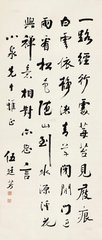 一路經行處莓苔見履痕
白雲依靜渚芳草閉閑門過
雨看松色隨山到水源溪花
與禪意相對亦忘言
小泉先生雅正 伍廷芳